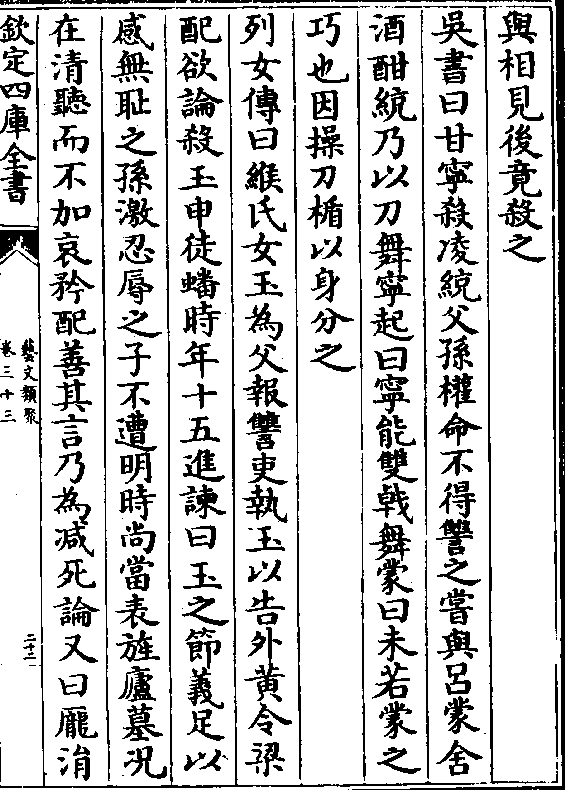 與相見後竟殺之
吳書曰甘寧殺凌統父孫權命不得讐之嘗與呂蒙舍
酒酣統乃以刀舞寧起曰寧能雙戟舞蒙曰未若蒙之
巧也因操刀楯以身分之
列女傳曰緱氏女玉為父報讐吏執玉以告外黄令梁
配欲論殺玉申徒蟠時年十五進諫曰玉之節義足以
感無恥之孫激忍辱之子不遭明時尚當表旌廬墓况
在清聽而不加哀矜配善其言乃為减死論又曰龐淯
欽定四庫全書
藝文類聚
卷三十三
二十二